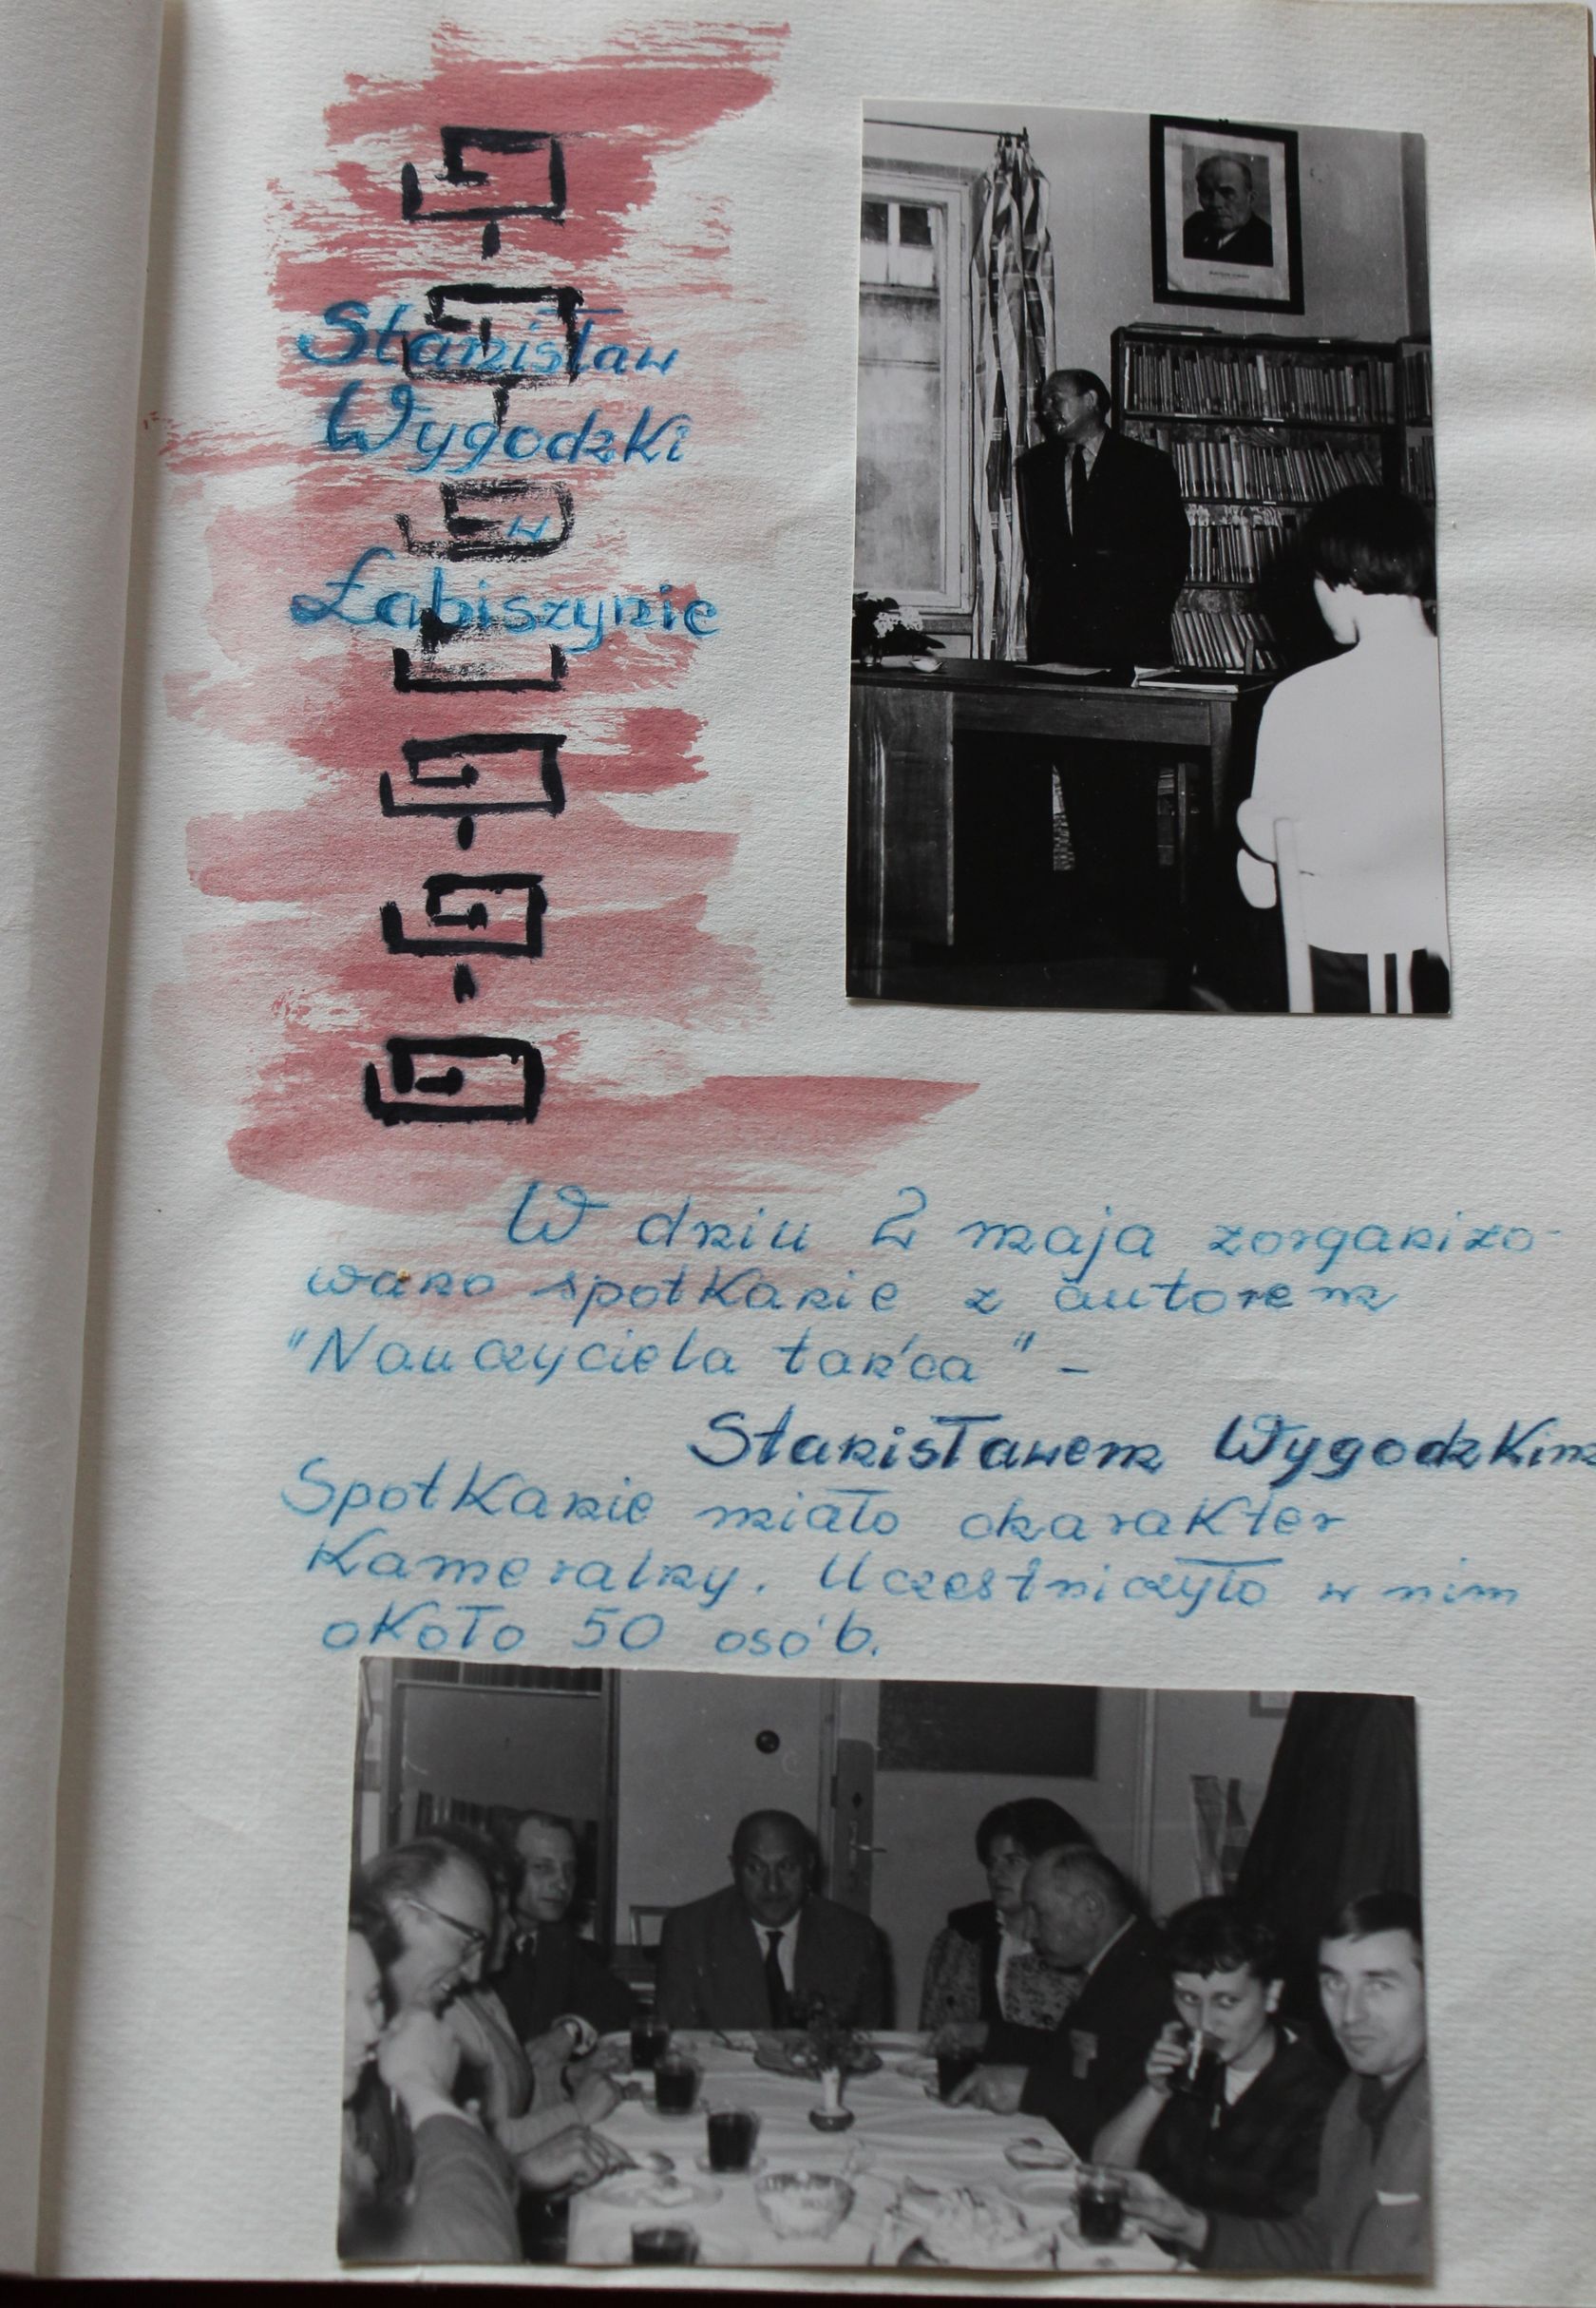 Stanisław
Wygodzki
w
Łabiszynie
W dniu 2 maja zorganizo-
wano spotkanie z autorem
"Nauczyciela tańca" -
Stanisławem Wygodzkim
Spotkanie miało charakter
Kameralny. Uczestniczyło w nim
około 50 osób.